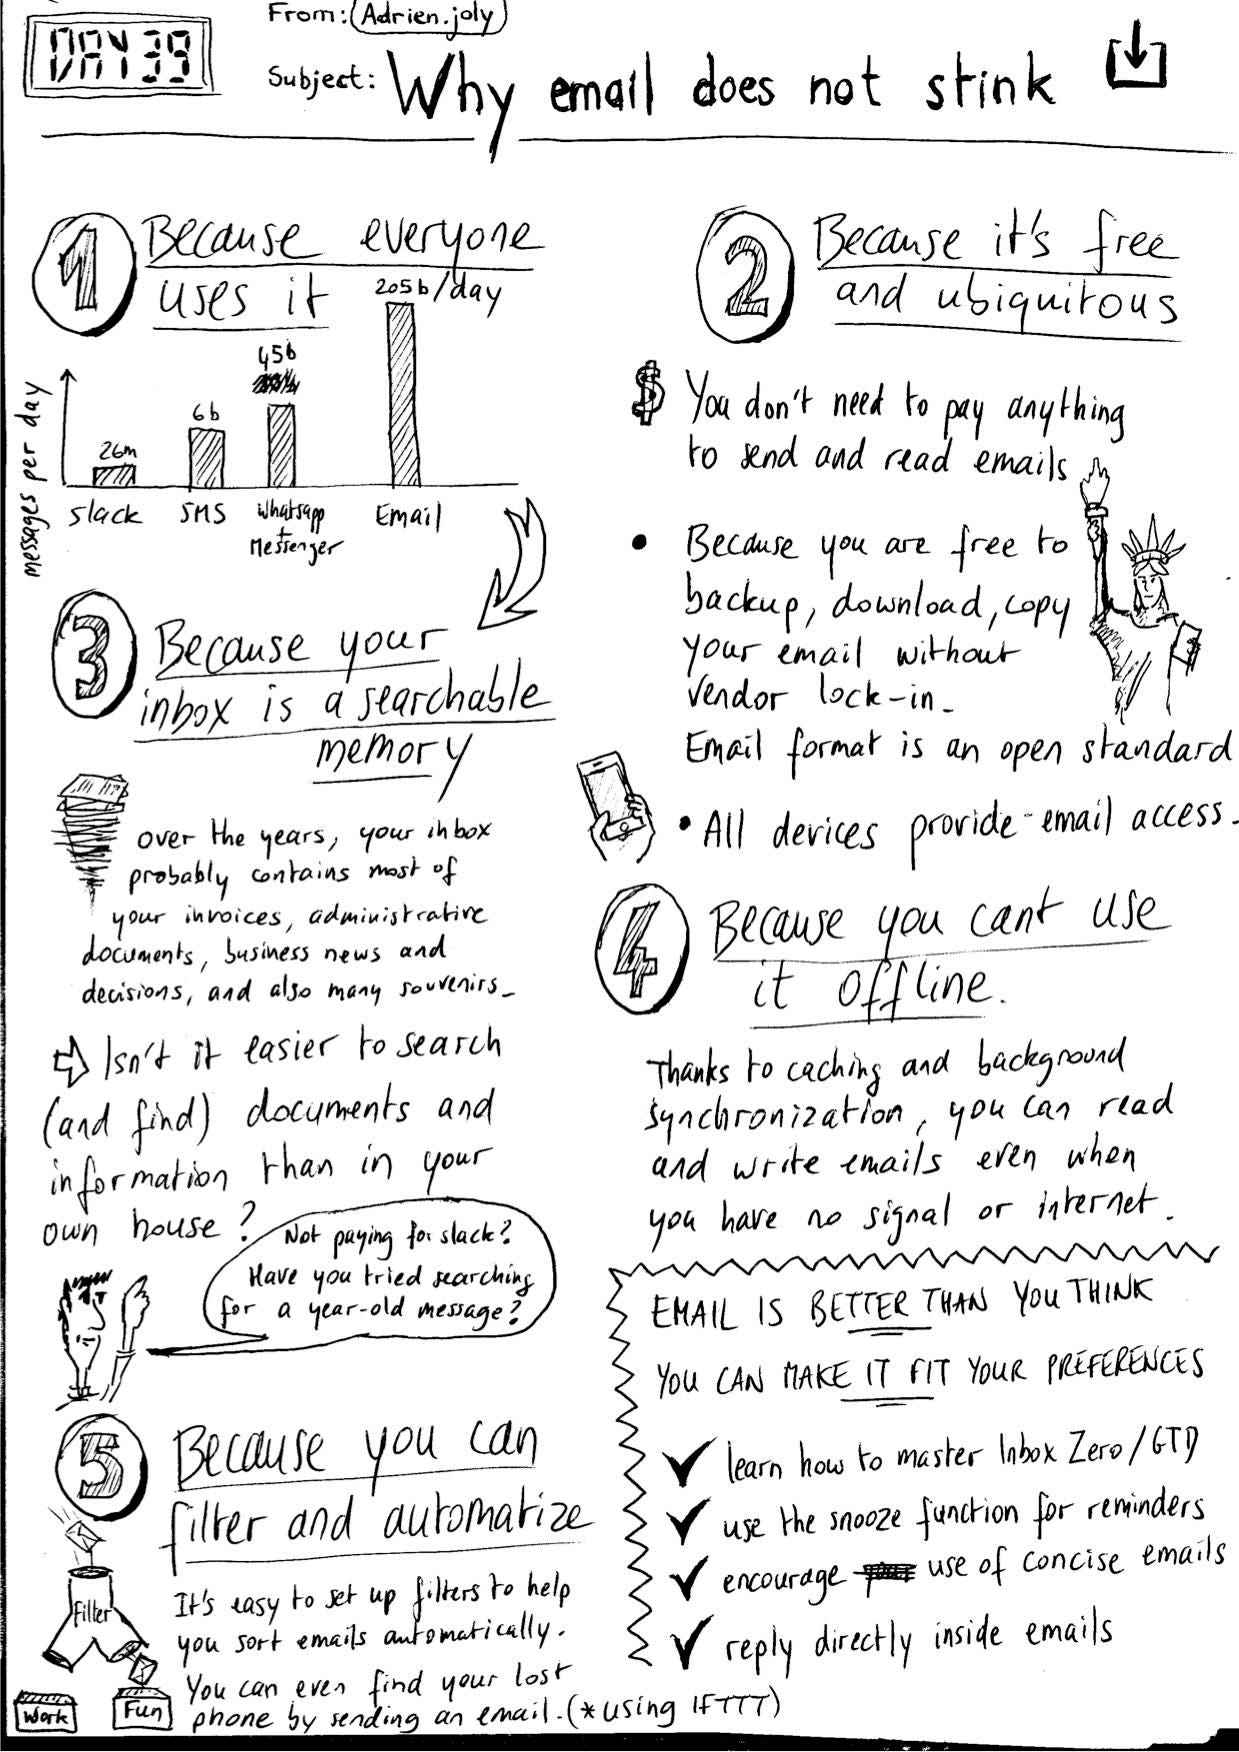 DAY 39
From: Adrien.joly
Subject: Why email does not stink
1 Because everyone
uses it
205b/day
45b
6b
26m
messages per day
slack SMS Whatsapp Email
+
Messenger
2 Because it's free
and ubiquitous
$ You don't need to pay anything
to send and read emails
• Because you are free to
backup, download, copy
your email without
vendor lock-in_
Email format is an open standard
• All devices provide email access_
3 Because your
inbox is a searchable
memory
over the years, your inbox
probably contains most of
your invoices, administrative
documents, business news and
decisions, and also many souvenirs_
⇨ Isn't it easier to search
(and find) documents and
information than in your
own house?
Not paying for slack?
Have you tried searching
for a year-old message?
4 Because you cant use
it offline.
Thanks to caching and background
synchronization, you can read
and write emails even when
you have no signal or internet.
5 Because you can
filter and automatize
It's easy to set up filters to help
you sort emails automatically.
You can even find your lost
phone by sending an email. (*using IFTTT)
Filter
Work
Fun
EMAIL IS BETTER THAN YOU THINK
YOU CAN MAKE IT FIT YOUR PREFERENCES
✓ learn how to master Inbox Zero/GTD
✓ use the snooze function for reminders
✓ encourage use of concise emails
✓ reply directly inside emails